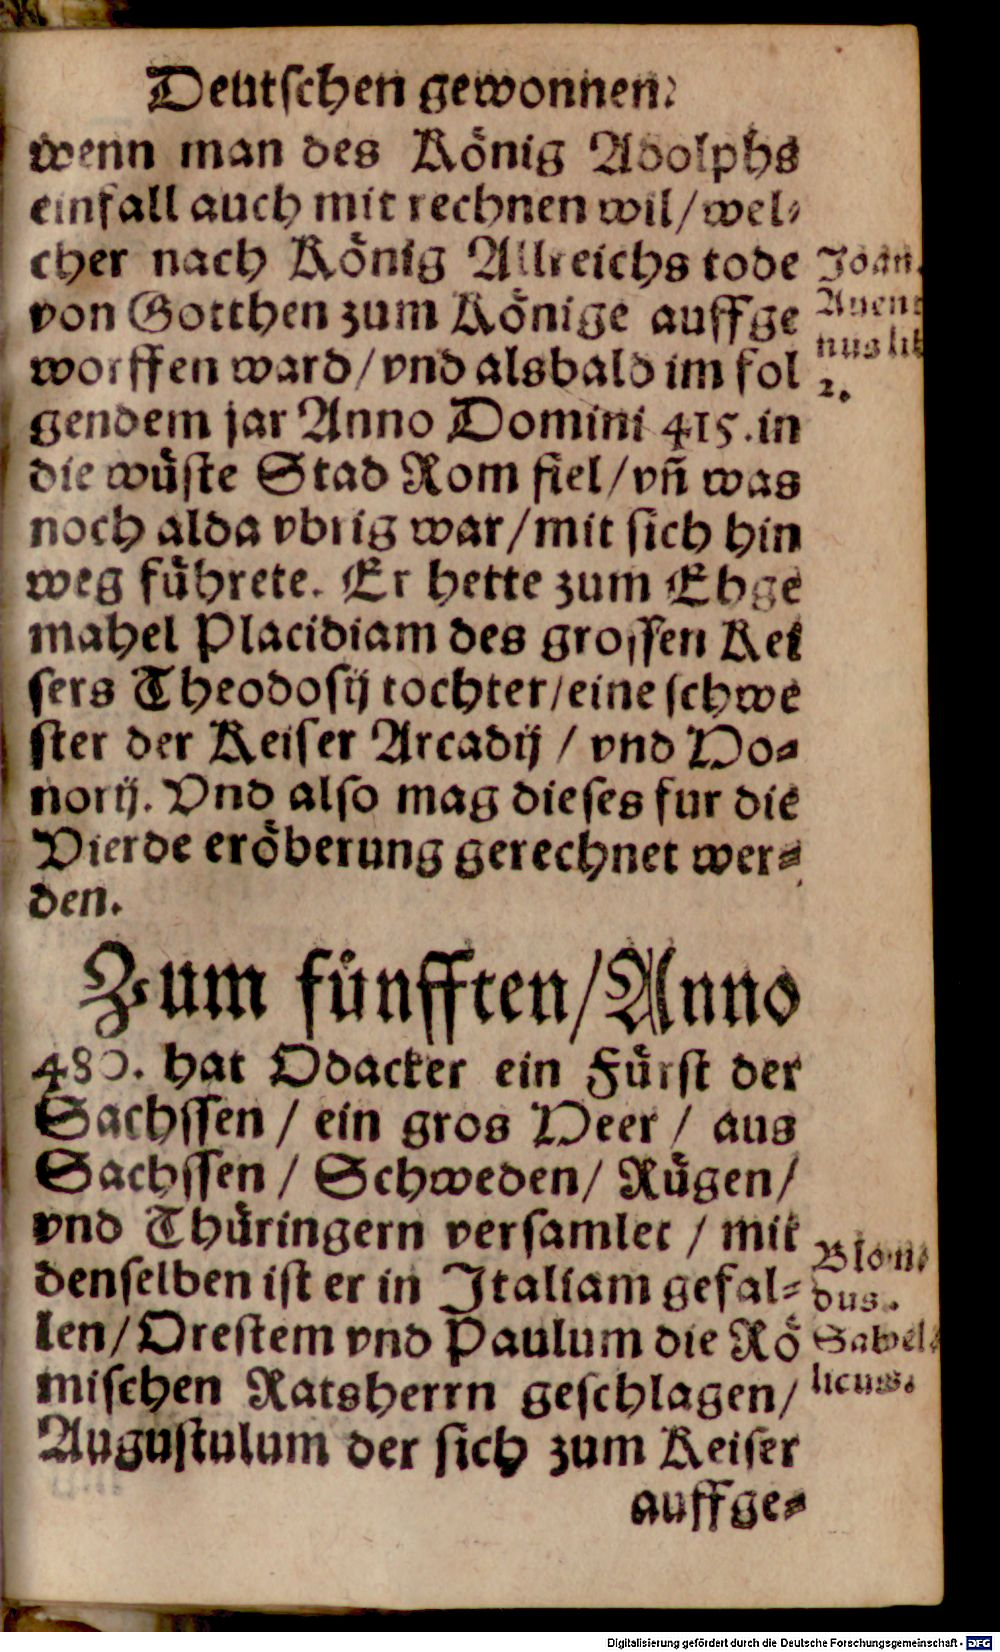 Deutſchen gewonnen.
wenn man des König Adolphs
einfall auch mit rechnen wil/wel-
cher nach König Allreichs tode
von Gotthen zum Könige auffge
worffen ward/vnd alsbald im fol
gendem jar Anno Domini 415.in
die wüſte Stad Rom fiel/vñ was
noch alda vbrig war/mit ſich hin
weg führete. Er hette zum Ehge
mahel Placidiam des groſſen Kei
ſers Theodoſij tochter/eine ſchwe
ſter der Keiſer Arcadij / vnd Ho-
norij. Vnd alſo mag dieſes fur die
Vierde eröberung gerechnet wer-
den.
Joan.
Auent
nus lib
2.
Zum fünfften/Anno
480. hat Odacker ein Fürſt der
Sachſſen / ein gros Heer / aus
Sachſſen / Schweden/ Rügen/
vnd Thüringern verſamlet / mit
denſelben iſt er in Italiam gefal-
len/Oreſtem vnd Paulum die Rö
miſchen Ratsherrn geſchlagen/
Auguſtulum der ſich zum Keiſer
auffge-
Blon-
dus.
Sabel-
licus.
Digitalisierung gefördert durch die Deutsche Forschungsgemeinschaft - DFG